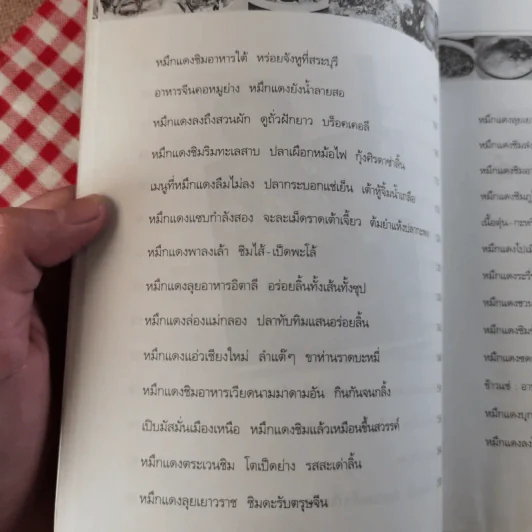 หมึกแดงชิมอาหารใต้ หร่อยจังหูที่สระบุรี
อาหารจีนคอหมูย่าง หมึกแดงยังน้ำลายสอ
หมึกแดงลงถึงสวนผัก ดูถั่วฝักยาว บร็อคเคอลี
หมึกแดงชิมริมทะเลสาบ ปลาเผือกหม้อไฟ กุ้งศิรดาซ่าลิ้น
เมนูที่หมึกแดงลืมไม่ลง ปลากระบอกแช่เย็น เต้าหู้จิ้มน้ำเกลือ
หมึกแดงแซบกำลังสอง จะละเม็ดราดเต้าเจี้ยว ต้มยำแห้งปลากะพง
หมึกแดงพาลงเล้า ชิมไส้-เป็ดพะโล้
หมึกแดงลุยอาหารอิตาลี อร่อยลิ้นทั้งเส้นทั้งซุป
หมึกแดงล่องแม่กลอง ปลาทับทิมแสนอร่อยลิ้น
หมึกแดงแอ่วเชียงใหม่ ลำแต๊ๆ ขาห่านราดบะหมี่
หมึกแดงชิมอาหารเวียดนามมาดามอัน กินกันจนกลิ้ง
เปิบมัสมั่นเมืองเหนือ หมึกแดงชิมแล้วเหมือนขึ้นสวรรค์
หมึกแดงตระเวนชิม โตเป็ดย่าง รสสะเด่าลิ้น
หมึกแดงลุยเยาวราช ชิมตะรับตรุษจีน
หมึกแดงลุยเยา
หมึกแดงชิม
หมึกแดงชิมอา
เนื้อตุ๋น-กะ
หมึกแดงไป
หมึกแดง
หมึกแดงชวน
หมึกแดงชิม
หมึกแดง
ข้าวแช่ : อา
หมึกแดงบุก
หมึกแดงลง